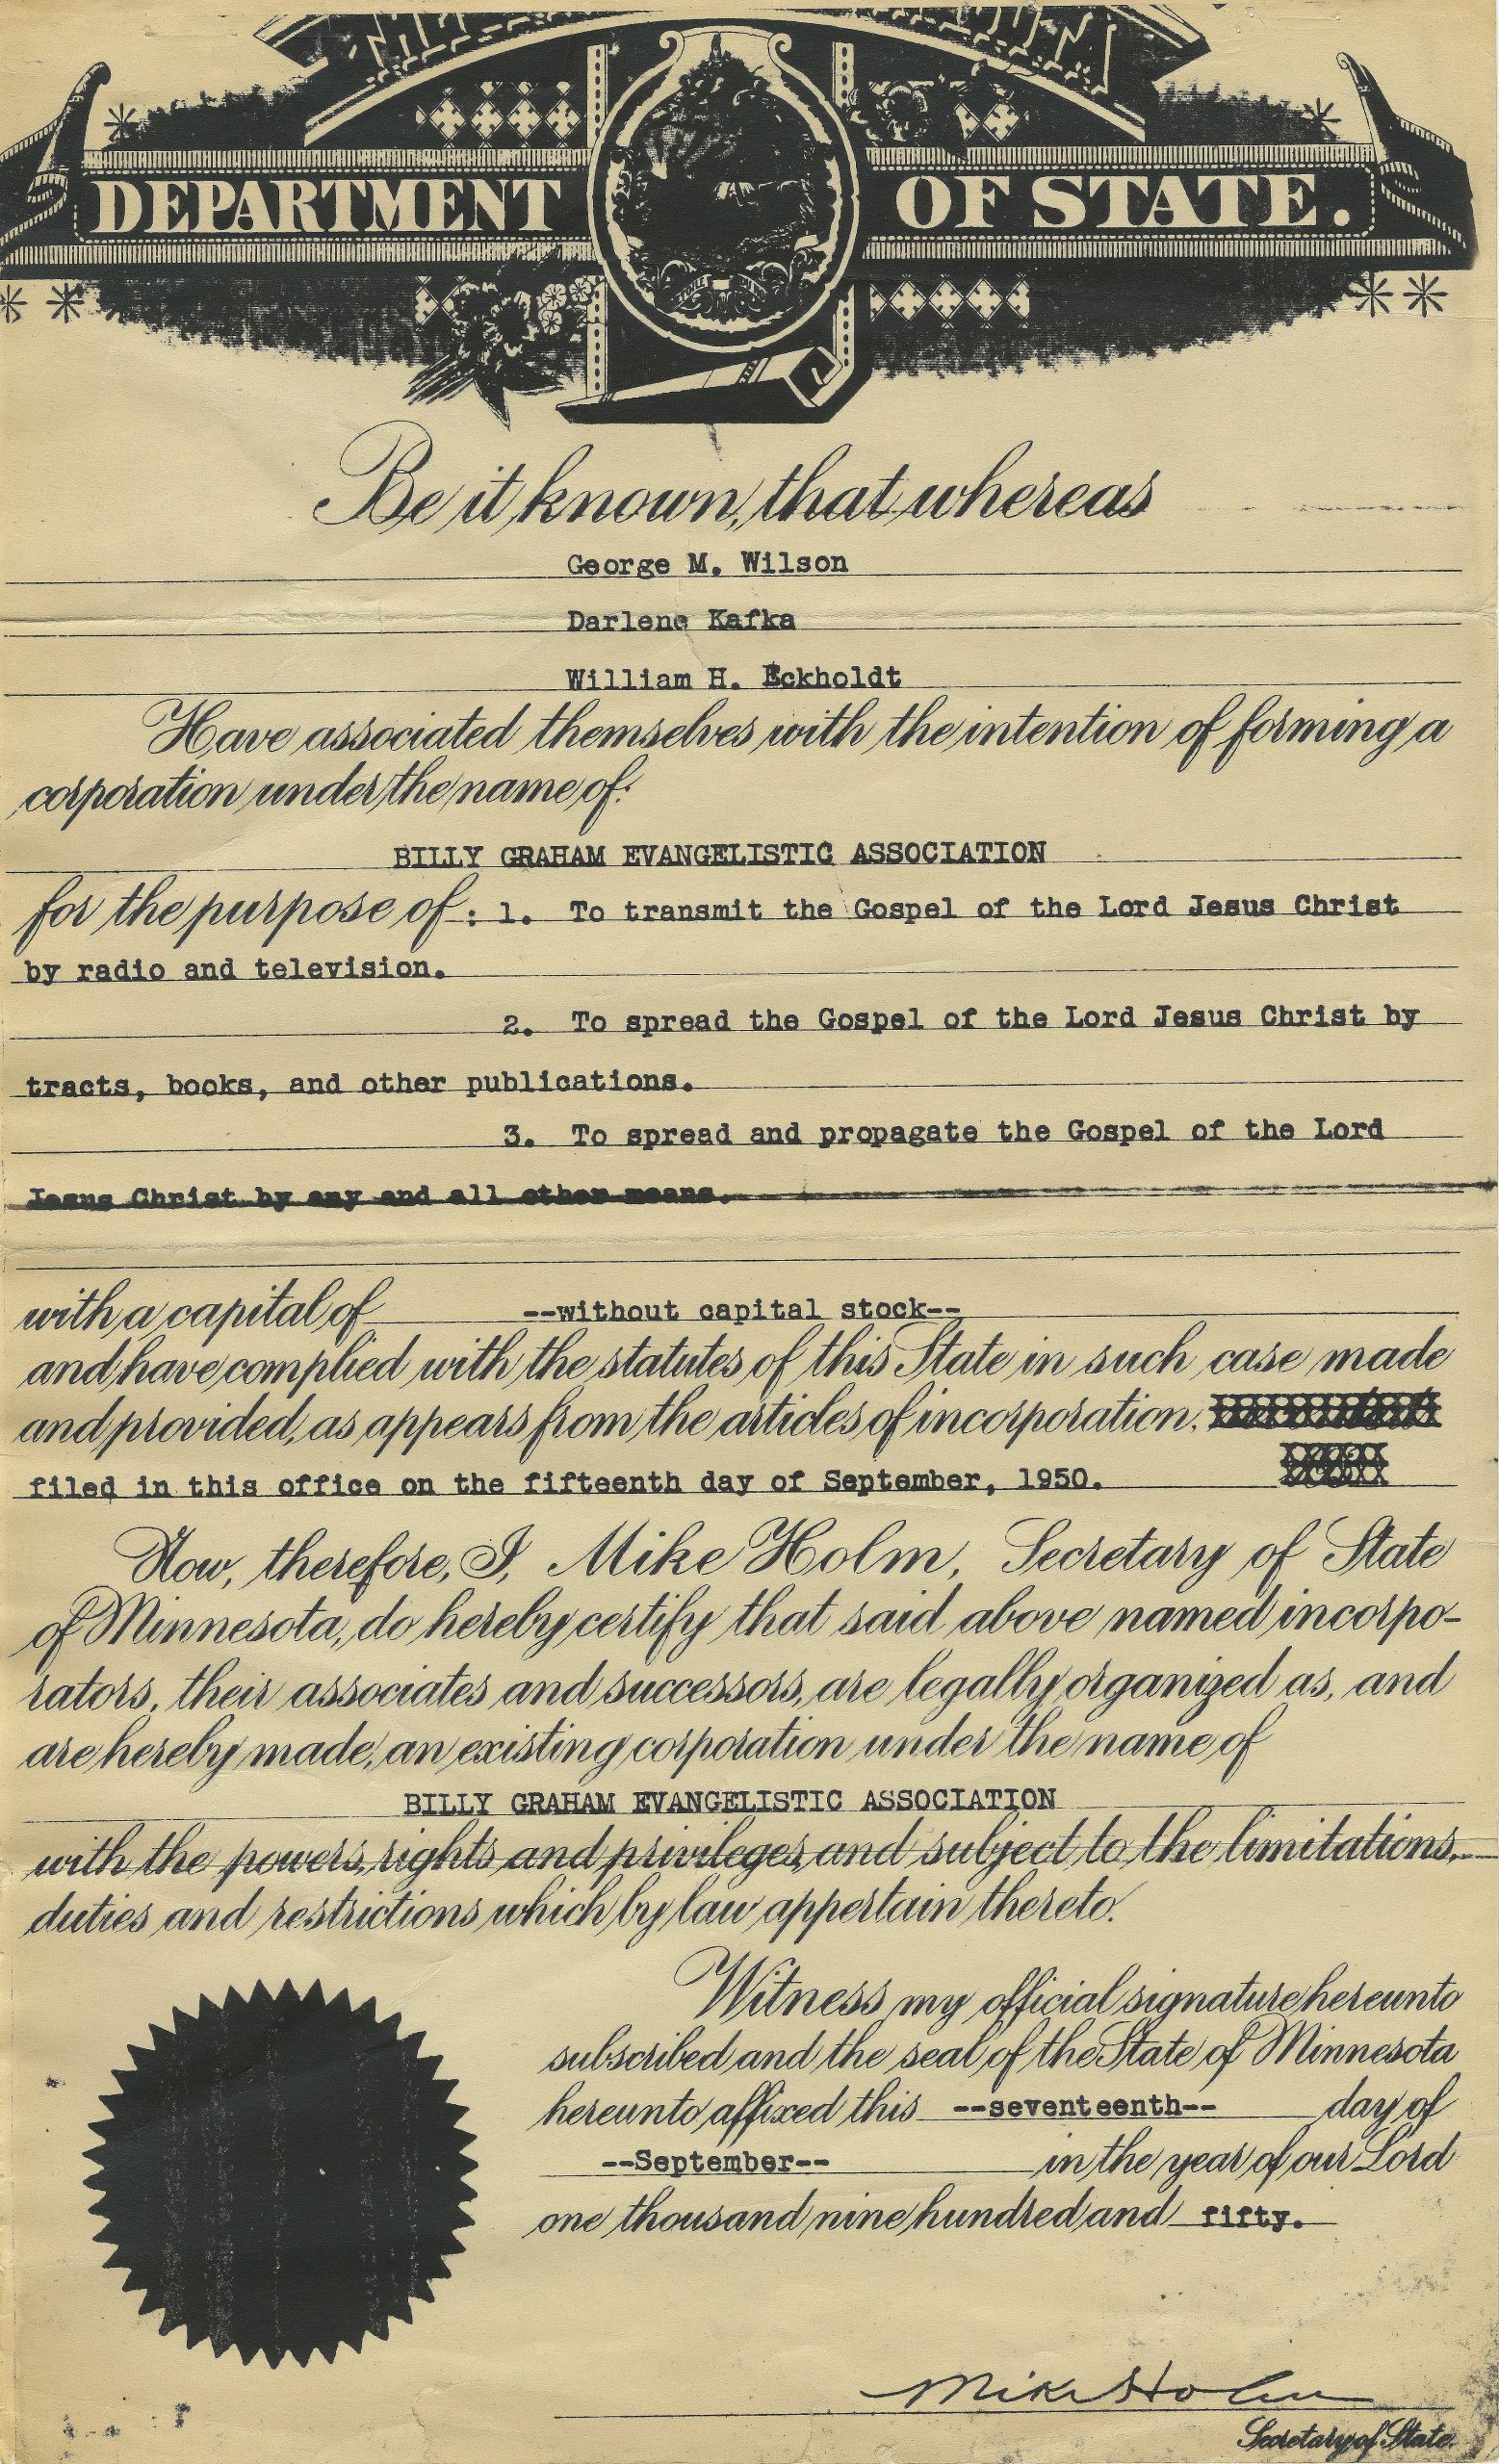 DEPARTMENT OF STATE.
Be it known, that whereas
George M. Wilson
Darlene Kafka
William H. Eckholdt
Have associated themselves with the intention of forming a
corporation under the name of:
BILLY GRAHAM EVANGELISTIC ASSOCIATION
for the purpose of: 1. To transmit the Gospel of the Lord Jesus Christ
by radio and television.
2. To spread the Gospel of the Lord Jesus Christ by
tracts, books, and other publications.
3. To spread and propagate the Gospel of the Lord
Jesus Christ by any and all other means.
with a capital of --without capital stock--
and have complied with the statutes of this State in such case made
and provided, as appears from the articles of incorporation,
filed in this office on the fifteenth day of September, 1950.
Now, therefore, I, Mike Holm, Secretary of State
of Minnesota, do hereby certify that said above named incorpo-
rators, their associates and successors, are legally organized as, and
are hereby made, an existing corporation under the name of
BILLY GRAHAM EVANGELISTIC ASSOCIATION
with the powers, rights and privileges, and subject to the limitations,
duties and restrictions which by law appertain thereto.
Witness my official signature hereunto
subscribed and the seal of the State of Minnesota
hereunto affixed this --seventeenth-- day of
--September-- in the year of our Lord
one thousand nine hundred and fifty.
Mike Holm
Secretary of State.